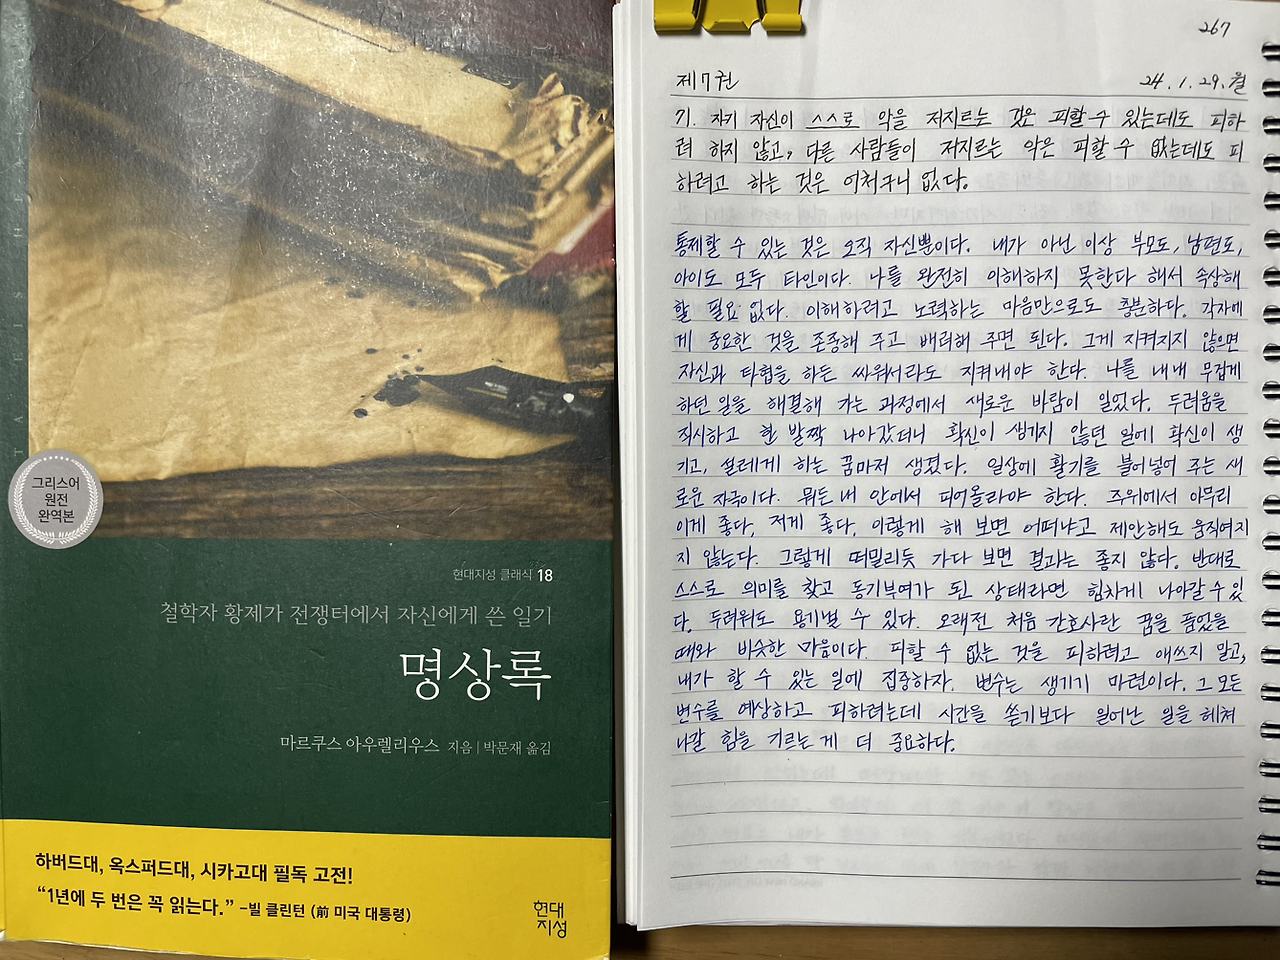 TAEIS HE
그리스어
원전
완역본
현대지성 클래식 18
철학자 황제가 전쟁터에서 자신에게 쓴 일기
명상록
마르쿠스 아우렐리우스 지음 | 박문재 옮김
하버드대, 옥스퍼드대, 시카고대 필독 고전!
“1년에 두 번은 꼭 읽는다.” –빌 클린턴 (前 미국 대통령)
현대
지성
267
제7권 24. 1. 29. 월
71. 자기 자신이 스스로 악을 저지르는 것은 피할 수 있는데도 피하
려 하지 않고, 다른 사람들이 저지르는 악은 피할 수 없는데도 피
하려고 하는 것은 어처구니 없다.
통제할 수 있는 것은 오직 자신뿐이다. 내가 아닌 이상 부모도, 남편도,
아이도 모두 타인이다. 나를 완전히 이해하지 못한다 해서 속상해
할 필요 없다. 이해하려고 노력하는 마음만으로도 충분하다. 각자에
게 중요한 것을 존중해 주고 배려해 주면 된다. 그게 지켜지지 않으면
자신과 타협을 하든 싸워서라도 지켜내야 한다. 나를 내내 무겁게
하던 일을 해결해 가는 과정에서 새로운 바람이 일었다. 두려움을
직시하고 한 발짝 나아갔더니 확신이 생기지 않던 일에 확신이 생
기고, 설레게 하는 꿈마저 생겼다. 일상에 활기를 불어넣어 주는 새
로운 자극이다. 뭐든 내 안에서 피어올라야 한다. 주위에서 아무리
이게 좋다, 저게 좋다, 이렇게 해 보면 어떠냐고 제안해도 움직여지
지 않는다. 그렇게 떠밀리듯 가다 보면 결과는 좋지 않다. 반대로
스스로 의미를 찾고 동기부여가 된 상태라면 힘차게 나아갈 수 있
다. 두려워도 용기낼 수 있다. 오래전 처음 간호사란 꿈을 품었을
때와 비슷한 마음이다. 피할 수 없는 것을 피하려고 애쓰지 말고,
내가 할 수 있는 일에 집중하자. 변수는 생기기 마련이다. 그 모든
변수를 예상하고 피하려는데 시간을 쏟기보다 일어난 일을 헤쳐
나갈 힘을 기르는 게 더 중요하다.